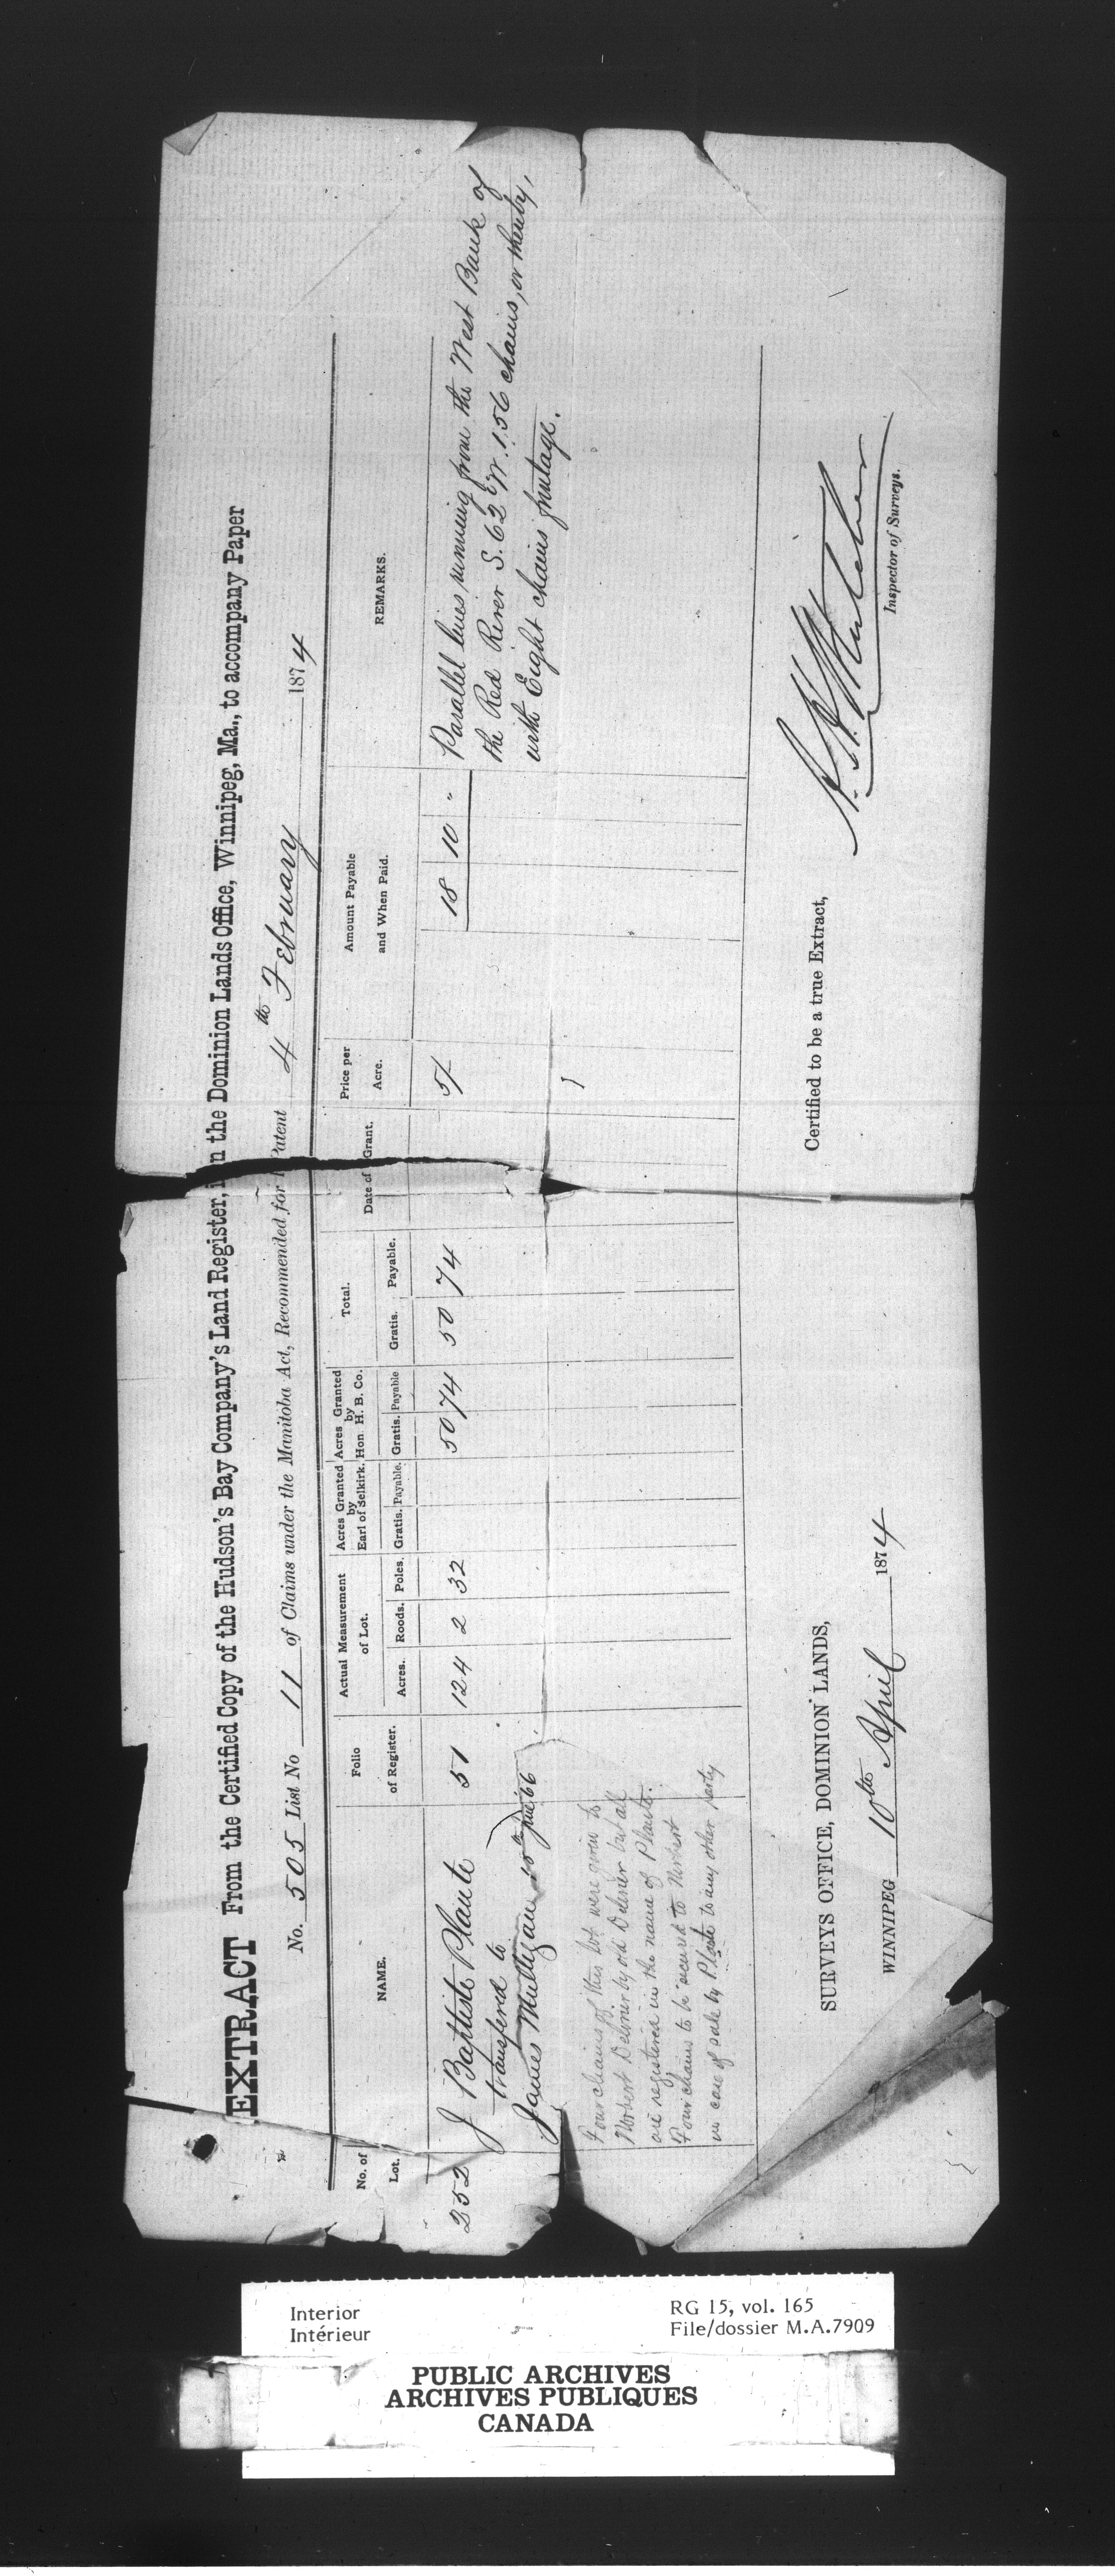 EXTRACT From the Certified Copy of the Hudson's Bay Company's Land Register, in the Dominion Lands Office, Winnipeg, Ma., to accompany Paper
No. 505 List No 11 of Claims under the Manitoba Act, Recommended for Patent 4th February 1874
No. of Lot.
NAME.
Folio of Register.
Actual Measurement of Lot.
Acres. Roods. Poles.
Acres Granted by Earl of Selkirk.
Gratis. Payable.
Acres Granted by Hon. H. B. Co.
Gratis. Payable
Total.
Gratis. Payable.
Date of Grant.
Price per Acre.
Amount Payable and When Paid.
REMARKS.
252 J Baptiste Plante 51 124 2 32 50 74 50 74 5/ 18 10 "
transfered to
James Mulligan 15th June 66
Parallel lines, running from the West Bank of
the Red River S. 62° W. 156 chains, or thereby,
with Eight chains frontage.
Four chains of this lot were given to
Norbert Delorier by old Delorier but all
are registered in the name of Plante.
Four chains to be secured to Norbert
in case of sale by Plante to any other party
SURVEYS OFFICE, DOMINION LANDS,
WINNIPEG 10th April 1874
Certified to be a true Extract,
Inspector of Surveys.
Interior
Intérieur
RG 15, vol. 165
File/dossier M.A.7909
PUBLIC ARCHIVES
ARCHIVES PUBLIQUES
CANADA